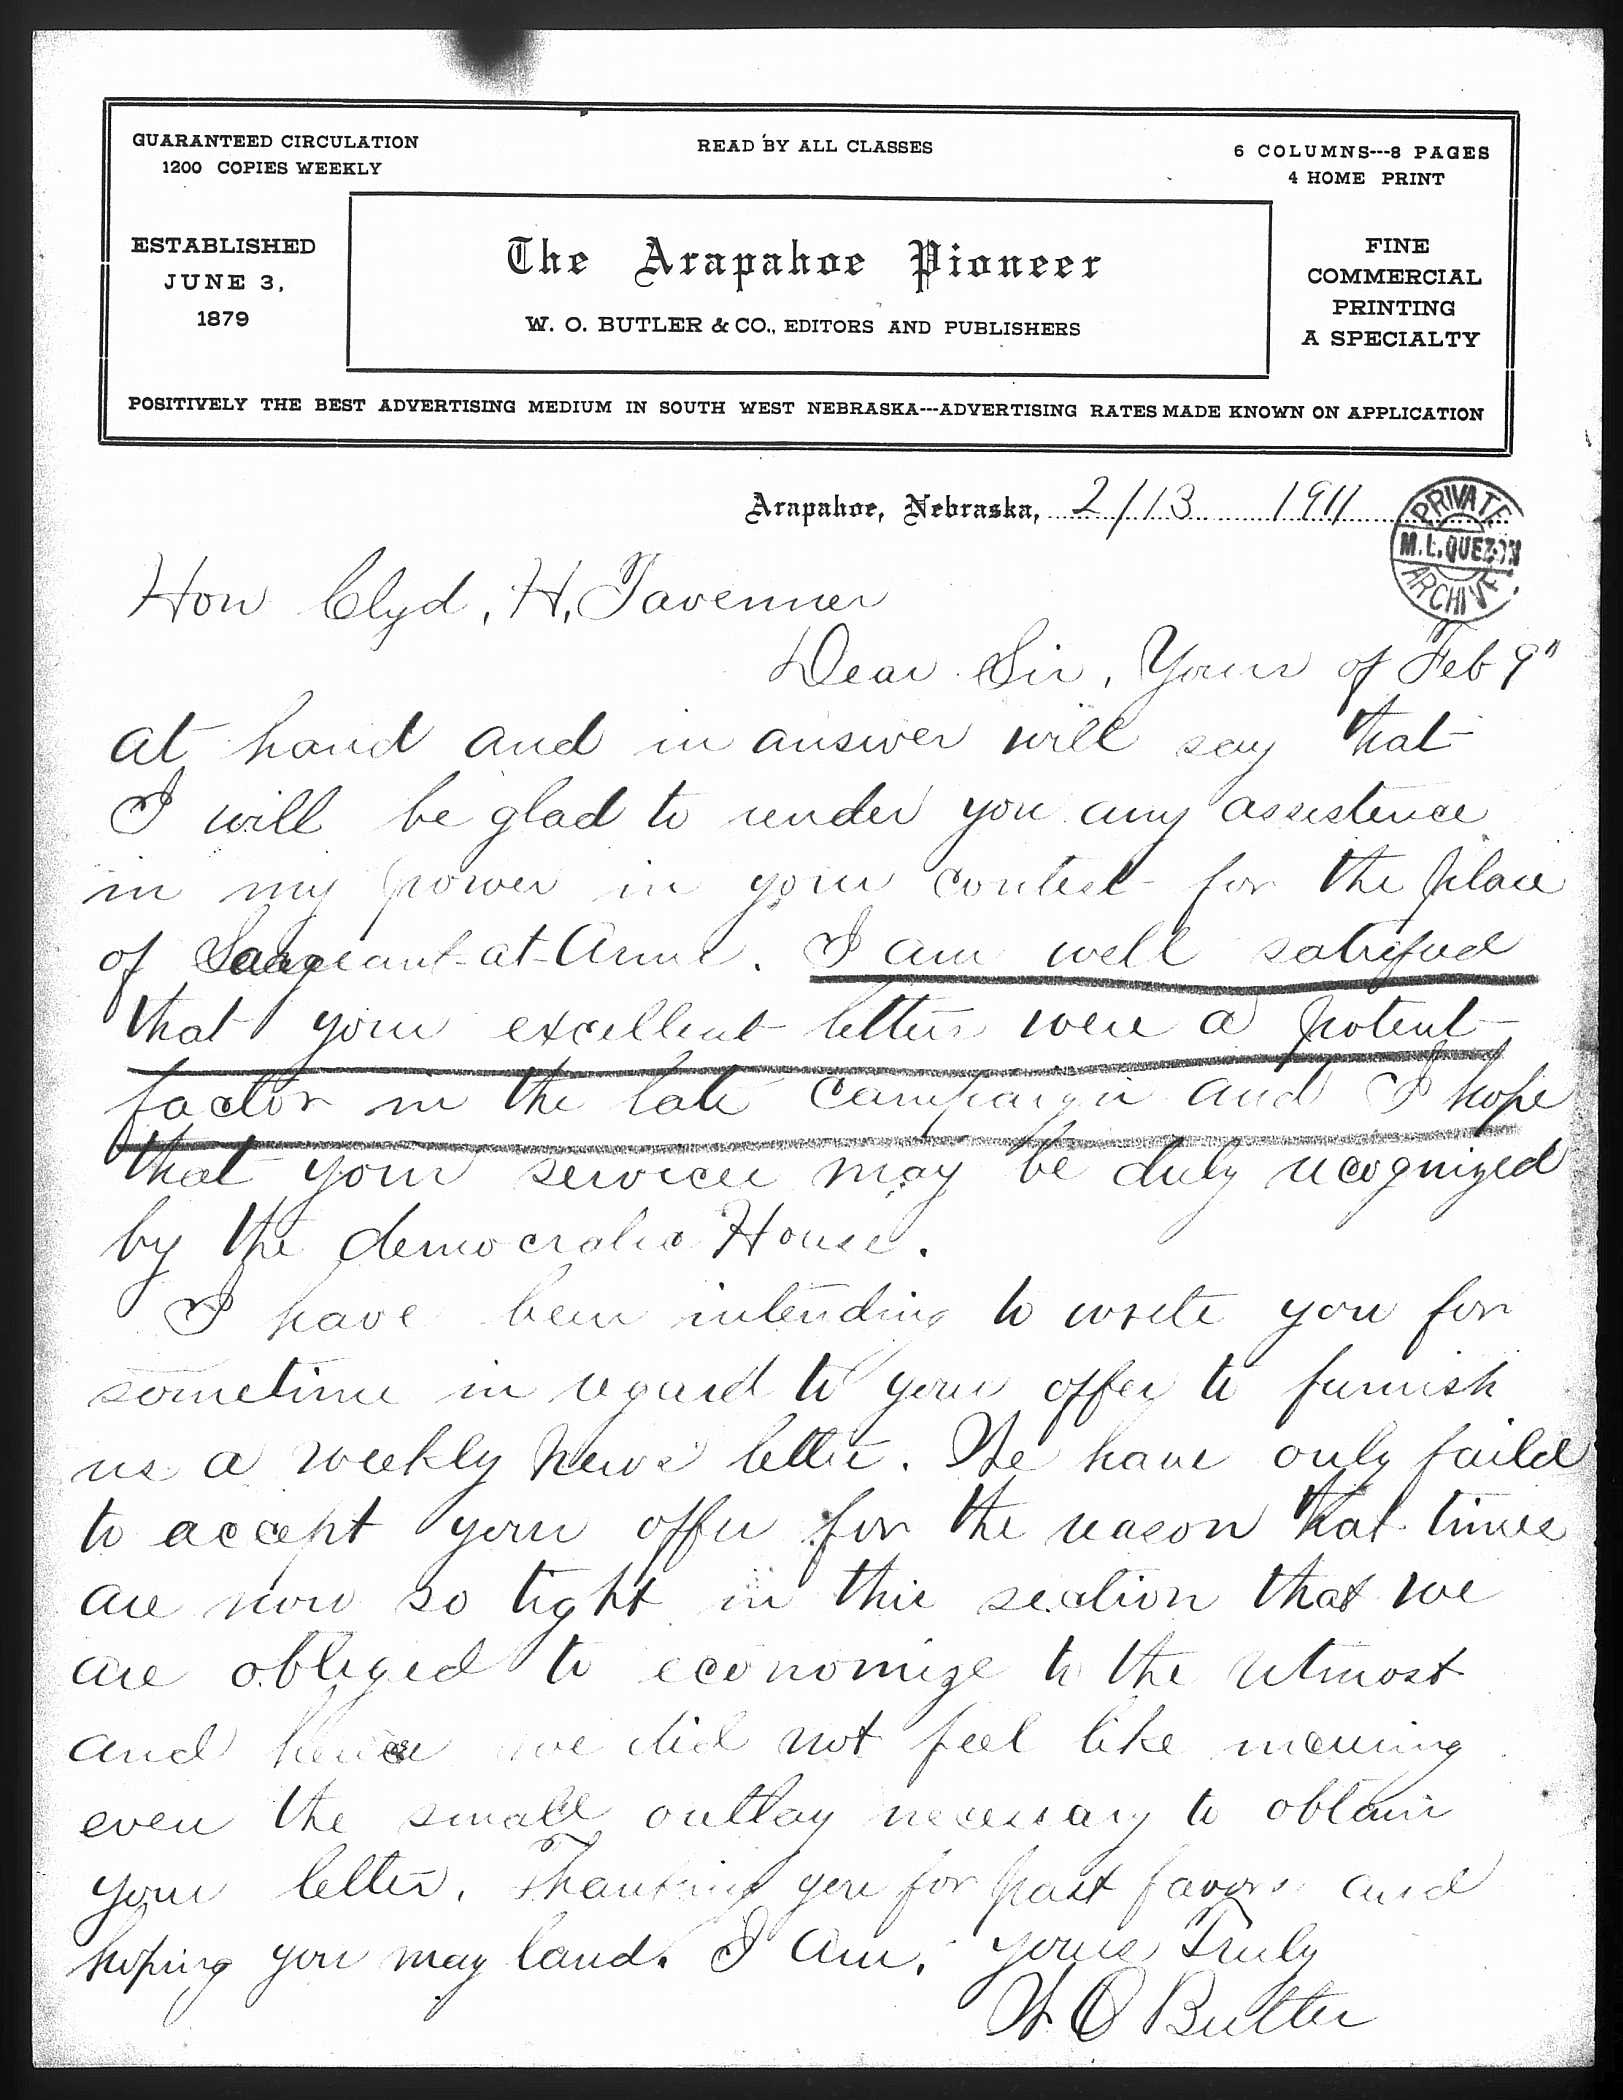 GUARANTEED CIRCULATION
1200 COPIES WEEKLY
READ BY ALL CLASSES
6 COLUMNS---8 PAGES
4 HOME PRINT
ESTABLISHED
JUNE 3,
1879
The Arapahoe Pioneer
W. O. BUTLER & CO., EDITORS AND PUBLISHERS
FINE
COMMERCIAL
PRINTING
A SPECIALTY
POSITIVELY THE BEST ADVERTISING MEDIUM IN SOUTH WEST NEBRASKA---ADVERTISING RATES MADE KNOWN ON APPLICATION
Arapahoe, Nebraska, 2/13 1911
PRIVATE
M. L. QUEZON
ARCHIVE
Hon Clyd, H, Tavenner
Dear Sir, Yours of Feb 9"
at hand and in answer will say that
I will be glad to render you any assistence
in my power in your contest for the place
of Sargeant-at-Arms. I am well satisfied
that your excellent letters were a potent
factor in the late campaign and I hope
that your services may be duly recognized
by the democratic House.
I have been intending to write you for
sometime in regard to your offer to furnish
us a weekly news letter. We have only faild
to accept your offer for the reason that times
are now so tight in this section that we
are obliged to economize to the utmost
and hence we did not feel like incuring
even the small outlay necessary to obtain
your letter. Thanking you for past favors and
hoping you may land. I am, yours Truly
W. O Butler